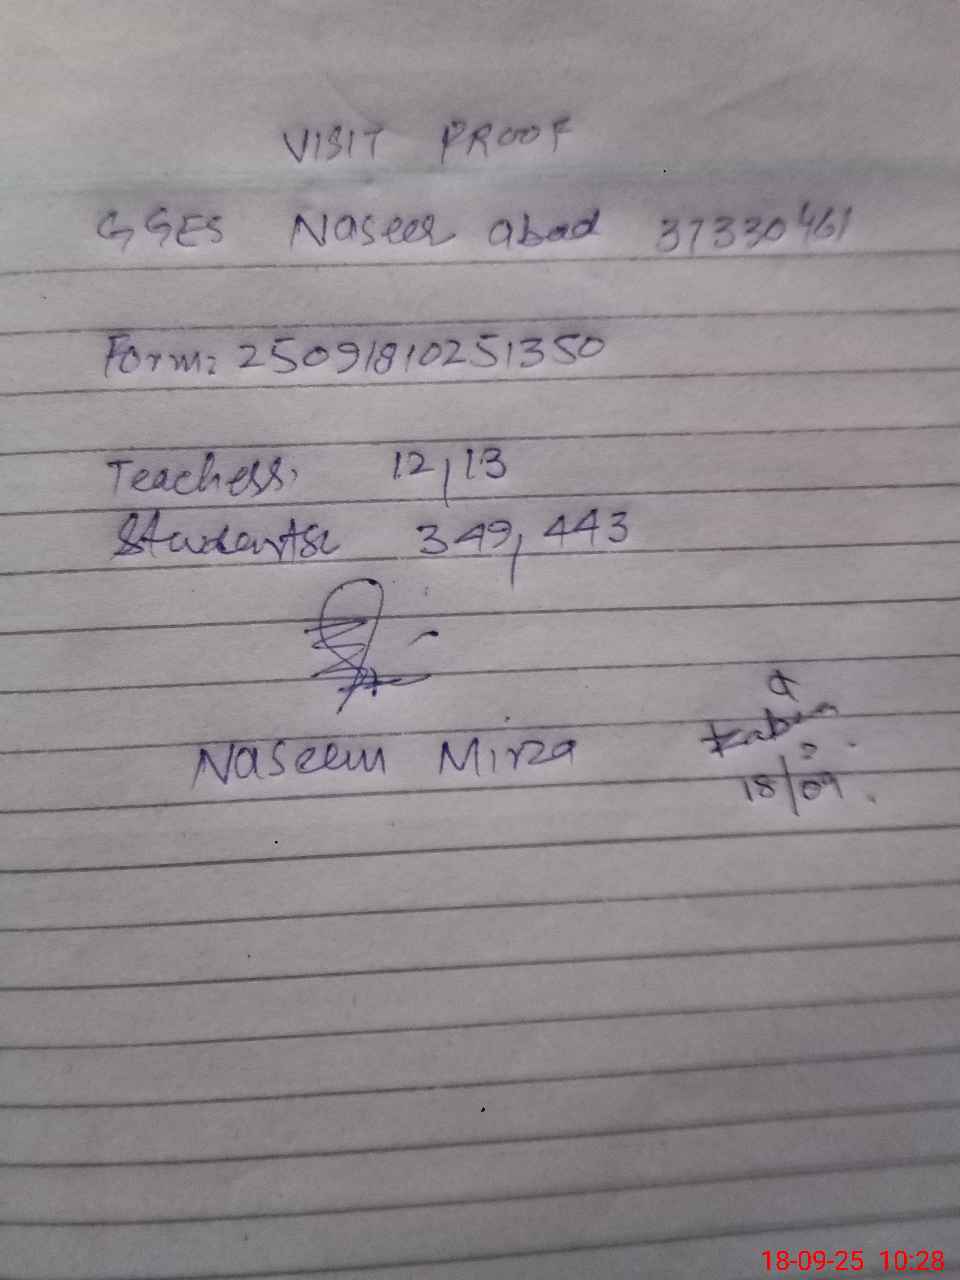 VISIT PROOF
GGES Naseer abad 37330461
Form: 25091810251350
Teachers: 12,13
Students: 349,443
Naseem Mirza
18/09.
18-09-25 10:28